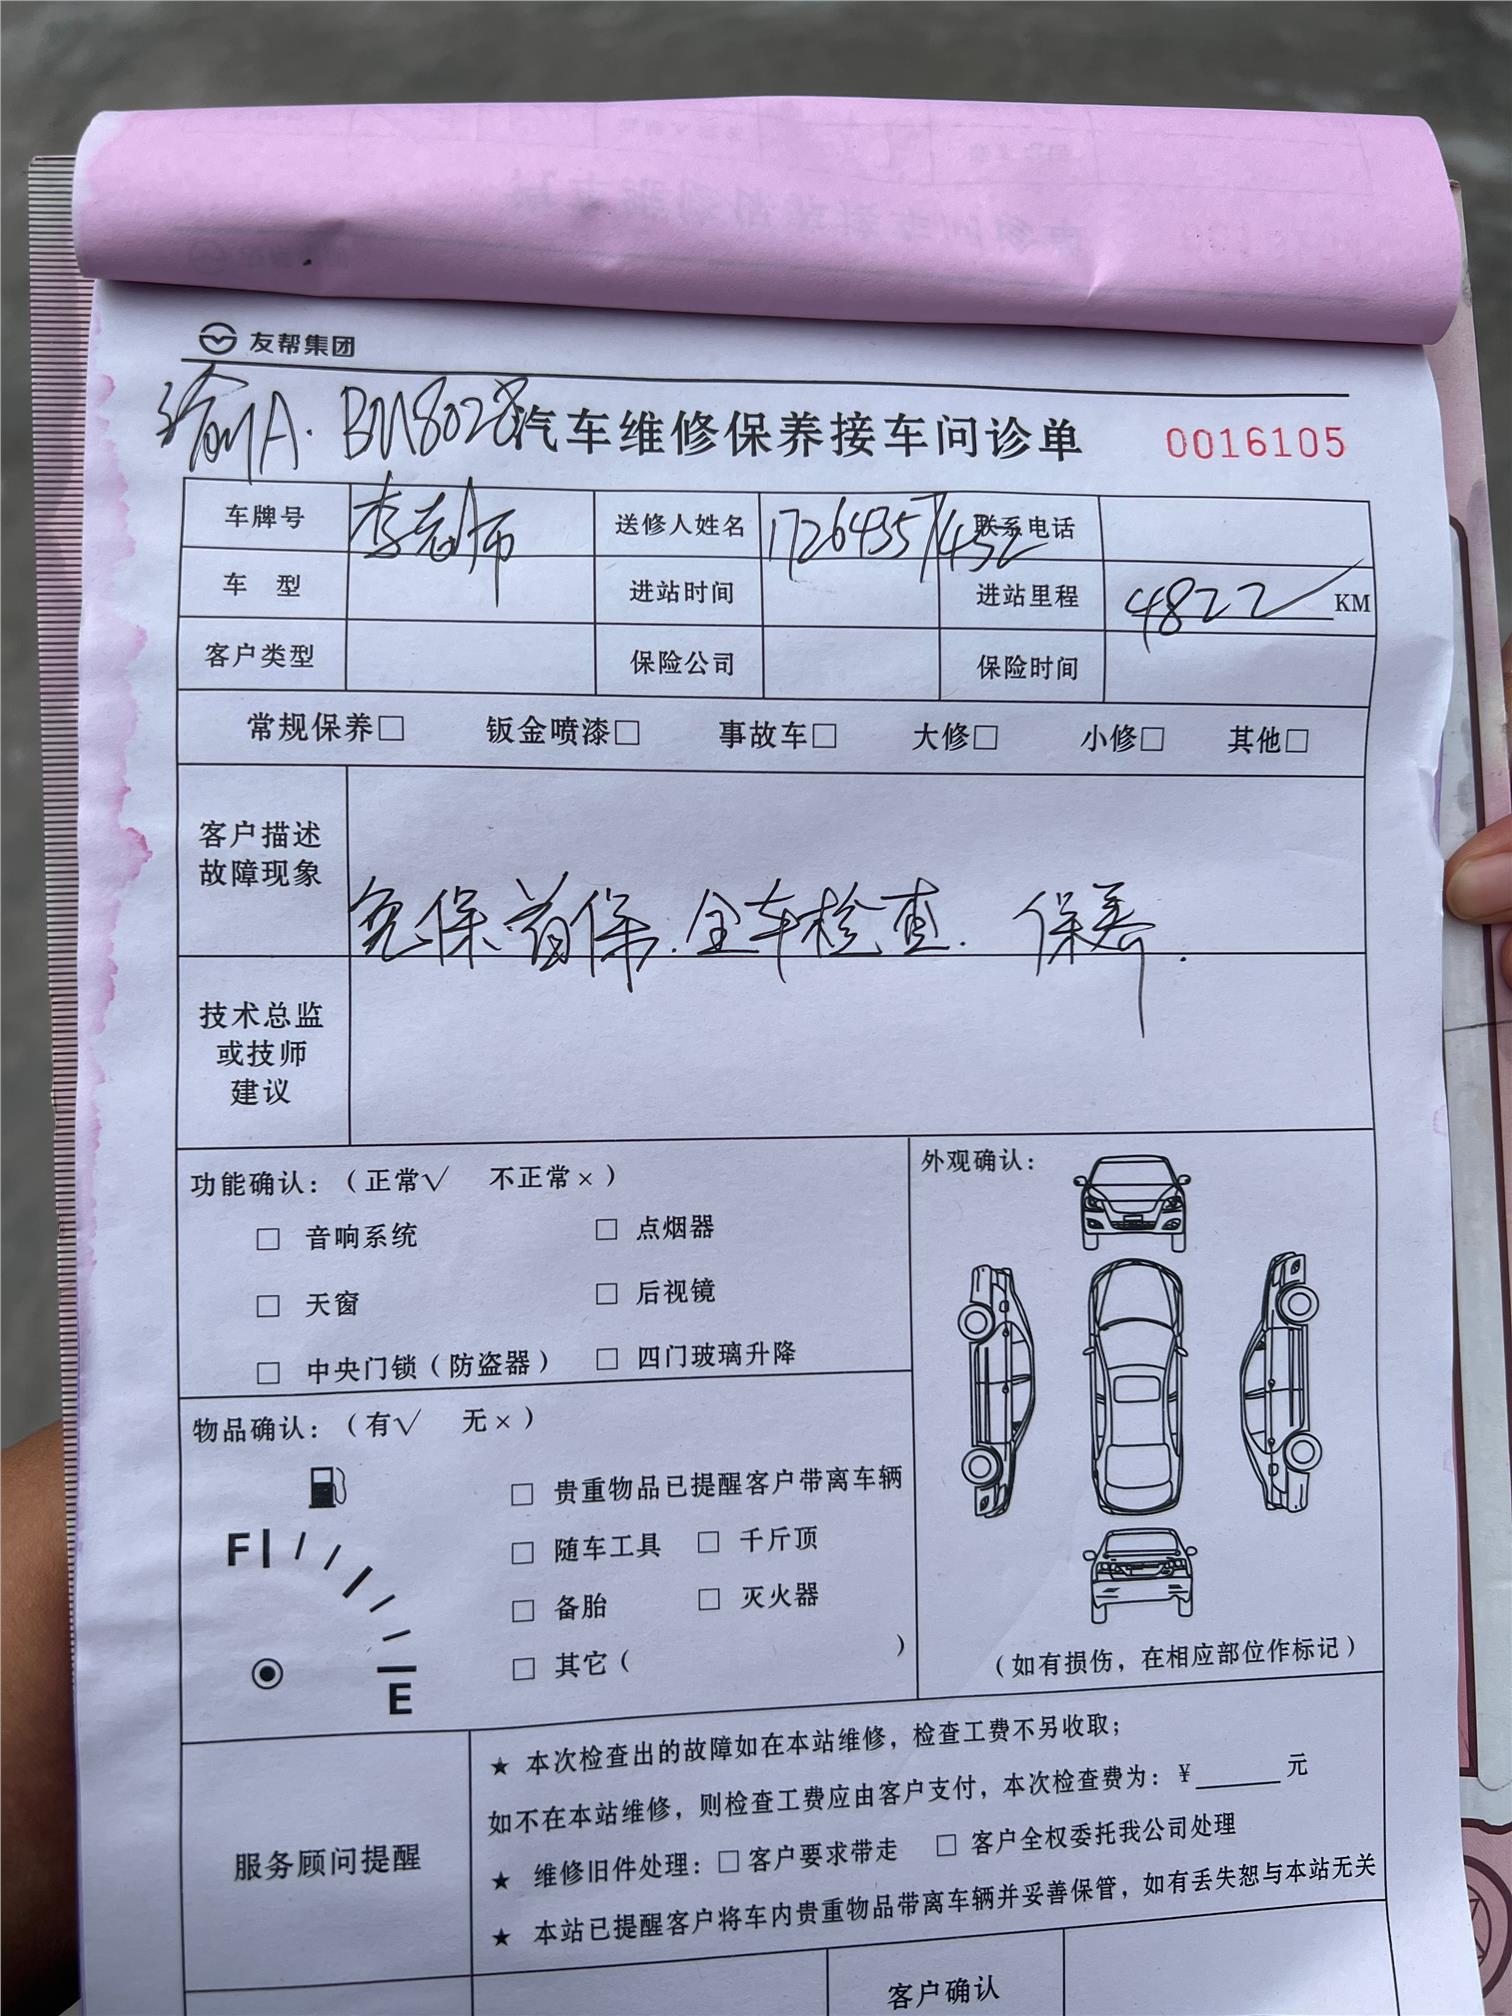 友帮集团
渝A·BM8028
汽车维修保养接车问诊单 0016105
车牌号 李老师 送修人姓名 17264357452 联系电话
车 型 进站时间 进站里程 4822 KM
客户类型 保险公司 保险时间
常规保养□ 钣金喷漆□ 事故车□ 大修□ 小修□ 其他□
客户描述
故障现象
免保.首保.全车检查. 保养.
技术总监
或技师
建议
功能确认:(正常√ 不正常×)
□ 音响系统 □ 点烟器
□ 天窗 □ 后视镜
□ 中央门锁(防盗器) □ 四门玻璃升降
外观确认:
(如有损伤,在相应部位作标记)
物品确认:(有√ 无×)
F
E
□ 贵重物品已提醒客户带离车辆
□ 随车工具 □ 千斤顶
□ 备胎 □ 灭火器
□ 其它( )
服务顾问提醒
★ 本次检查出的故障如在本站维修,检查工费不另收取;
如不在本站维修,则检查工费应由客户支付,本次检查费为:¥______元
★ 维修旧件处理:□客户要求带走 □ 客户全权委托我公司处理
★ 本站已提醒客户将车内贵重物品带离车辆并妥善保管,如有丢失恕与本站无关
客户确认